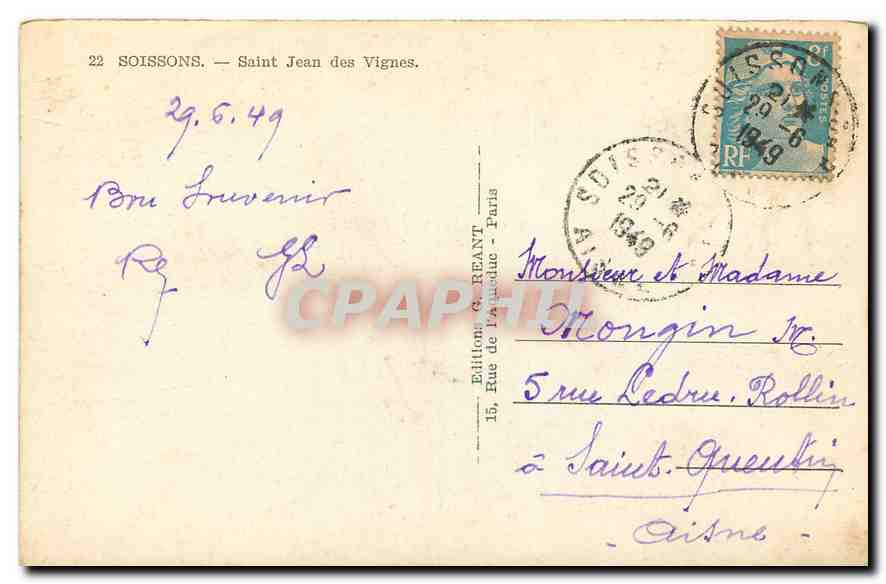 22 SOISSONS. — Saint Jean des Vignes.
29.6.49
Bon Souvenir
Editions G. REANT
15, Rue de l'Aqueduc - Paris
8F
POSTES
RF
SOISSONS
21 *
29 -6
1949
SOISSONS
21 *
29 -6
1949
AISNE
Monsieur et Madame
Mongin M.
5 rue Ledru. Rollin
à Saint-Quentin
- Aisne -
CPAPHIL